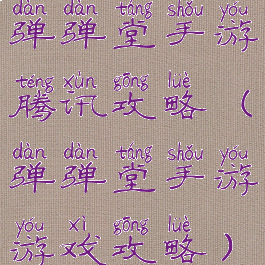 dàn dàn táng shǒu yóu
弹弹堂手游
téng xùn gōng lüè
腾讯攻略（
dàn dàn táng shǒu yóu
弹弹堂手游
yóu xì gōng lüè
游戏攻略）